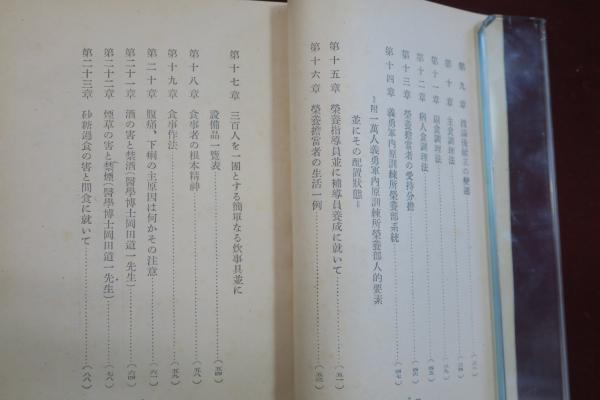 第九章
第十章 主食調理法
第十一章 副食調理法
第十二章 病人食調理法
第十三章 榮養擔當者の受持分擔
第十四章 義勇軍內原訓練所榮養部系統
＝附一萬人義勇軍內原訓練所榮養部人的要素
並にその配置狀態＝
第十五章 榮養指導員並に補導員養成に就いて (五一)
第十六章 榮養擔當者の生活一例
第十七章 三百人を一團とする簡單なる炊事具並に
設備品一覽表 (五四)
第十八章 食事者の根本精神 (五八)
第十九章 食事作法 (五九)
第二十章 腹痛、下痢の主原因は何かその注意 (六一)
第二十一章 酒の害と禁酒(醫學博士岡田道一先生) (六四)
第二十二章 煙草の害と禁煙(醫學博士岡田道一先生) (七八)
第二十三章 砂糖過食の害と間食に就いて (八八)